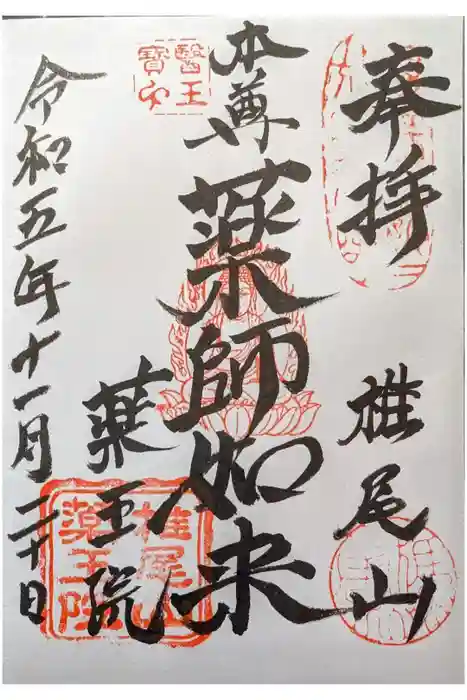 奉拝
椎尾山
本尊
薬師如来
薬王院
令和五年十一月二十日
醫王
寶印
椎尾山
薬王院